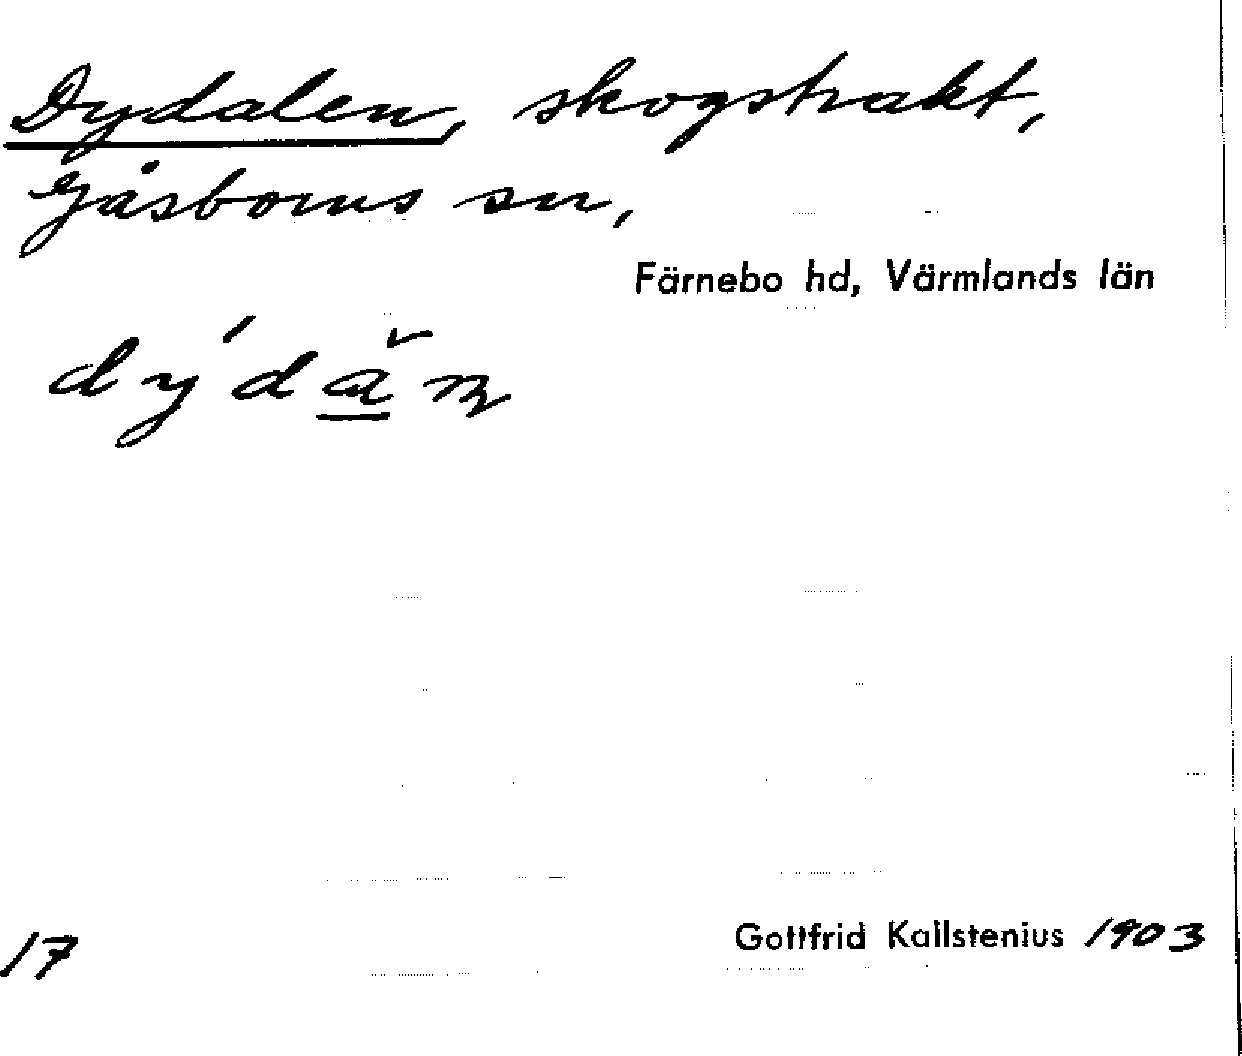 Dydalen, skogstrakt,
Gåsborns sn,
Färnebo hd, Värmlands län
17
Gottfrid Kallstenius 1903